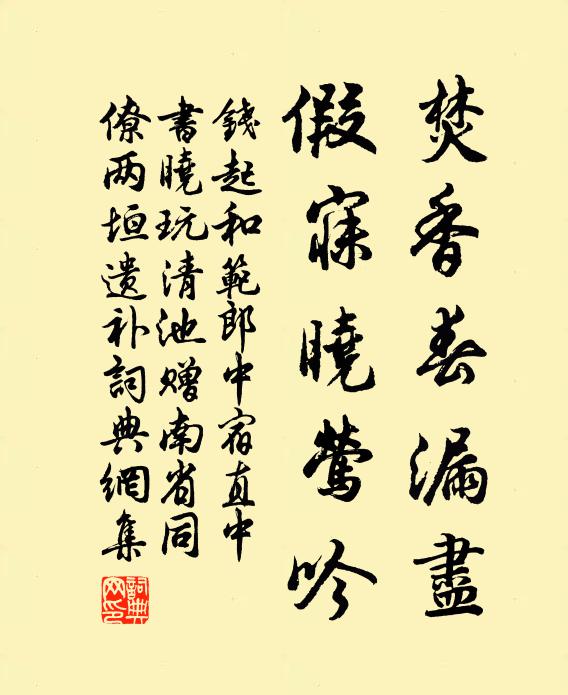 焚香春漏盡
假寐曉鶯吟
錢起和範郎中宿直中
書曉玩清池赠南省同
僚两垣遗补詞典網集